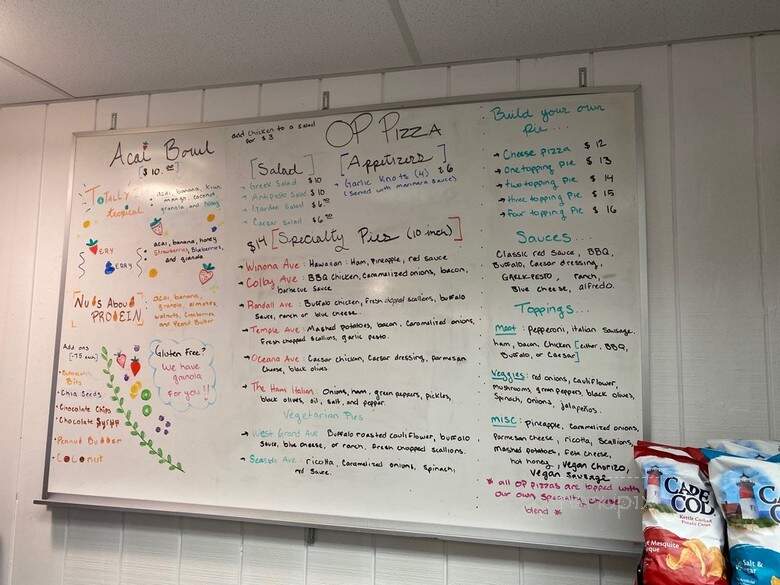 Acai Bowl
[$10.00]
Totally tropical
: acai, banana, kiwi,
mango, coconut,
granola and honey
VERY
BERRY
: acai, banana, honey
Strawberries, Blueberries,
and granola
Nuts About
PROTEIN
: acai, banana,
granola, almonds,
walnuts, cranberries
and Peanut Butter
Add ons
[.75 each]
• Butterscotch
Bits
• Chia Seeds
• Chocolate Chips
• Chocolate Syrup
• Peanut Butter
• Coconut
Gluten Free?
We have
granola
for you!!
add chicken to a salad
for $3
OP PIZZA
[Salad]
- Greek Salad $10
- Antipasto Salad $10
- Garden Salad $6
- Caesar Salad $6
[Appetizers]
- Garlic Knots (4) $6
(Served with marinara sauce)
$14 [Specialty Pies (10 inch)]
→ Winona Ave: Hawaiian: Ham, pineapple, red sauce
→ Colby Ave: BBQ Chicken, Caramalized onions, bacon,
barbecue sauce
→ Randall Ave: Buffalo chicken, fresh chopped scallions, buffalo
sauce, ranch or blue cheese.
→ Temple Ave: Mashed potatoes, bacon, caramelized onions,
Fresh chopped scallions, garlic pesto.
→ Oceana Ave: Caesar chicken, Caesar dressing, parmesan
cheese, black olives
→ The Ham Italian: Onions, ham, green peppers, pickles,
black olives, oil, salt, and pepper.
Vegetarian Pies
→ West Grand Ave: Buffalo roasted cauliflower, buffalo
sauce, blue cheese, or ranch, fresh chopped scallions.
→ Seaside Ave: ricotta, Caramalized onions, spinach,
red sauce.
Build your own
Pie...
→ Cheese pizza $12
→ One topping pie $13
→ two topping pie $14
→ three topping pie $15
→ Four topping pie $16
Sauces...
Classic red sauce, BBQ,
Buffalo, Caesar dressing,
GARLIC PESTO, ranch,
Blue cheese, alfredo.
Toppings...
Meat: pepperoni, Italian Sausage,
ham, bacon, Chicken [either, BBQ,
Buffalo, or Caesar]
Veggies: red onions, cauliflower,
mushrooms, green peppers, black olives,
Spinach, onions, jalapeños.
MISC: pineapple, caramalized onions,
Parmesan cheese, ricotta, Scallions,
mashed potatoes, feta cheese,
hot honey, Vegan Chorizo,
Vegan sausage
* all OP pizzas are topped with
our own specialty cheese
blend *
CAPE
COD
Kettle Cooked
Potato Chips
Mesquite
CAPE
COD
Salt &